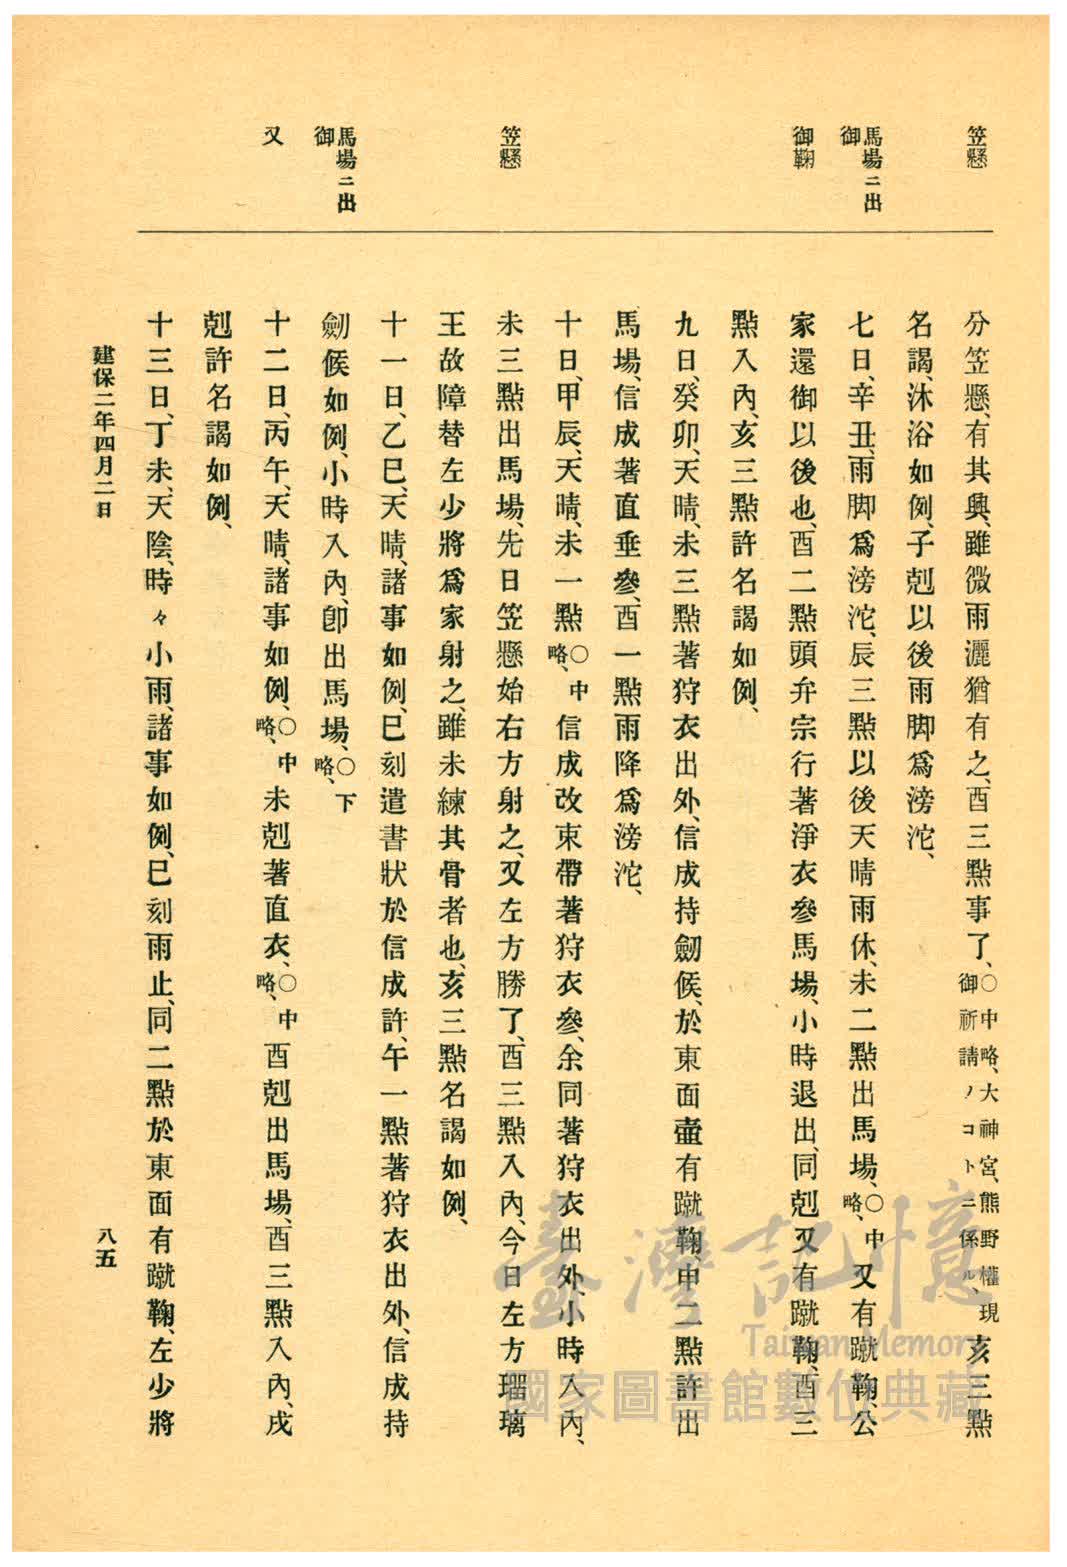 笠懸
馬場ニ出
御
御鞠
笠懸
馬場ニ出
御
又
分笠懸、有其興、雖微雨灑猶有之、酉三點事了、〇中略、大神宮、熊野權現御祈請ノコトニ係ル、亥三點
名謁、沐浴如例、子剋以後雨脚爲滂沱、
七日、辛丑、雨脚爲滂沱、辰三點以後天晴雨休、未二點出馬場、〇中略、又有蹴鞠、公
家還御以後也、酉二點頭弁宗行著淨衣參馬場、小時退出、同剋又有蹴鞠、酉三
點入內、亥三點許名謁如例、
九日、癸卯、天晴、未三點著狩衣出外、信成持劒候、於東面壺有蹴鞠、申二點許出
馬場、信成著直垂參、酉一點雨降爲滂沱、
十日、甲辰、天晴、未一點〇中略、信成改束帶著狩衣參、余同著狩衣出外、小時入內、
未三點出馬場、先日笠懸始右方射之、又左方勝了、酉三點入內、今日左方瑠璃
王故障替左少將爲家射之、雖未練其骨者也、亥三點名謁如例、
十一日、乙巳、天晴、諸事如例、巳刻遣書狀於信成許、午一點著狩衣出外、信成持
劒候如例、小時入內、卽出馬場、〇下略、
十二日、丙午、天晴、諸事如例、〇中略、未剋著直衣、〇中略、酉剋出馬場、酉三點入內、戌
剋許名謁如例、
十三日、丁未、天陰、時々小雨、諸事如例、巳刻雨止、同二點於東面有蹴鞠、左少將
建保二年四月二日
八五
臺灣記憶
Taiwan Memory
國家圖書館數位典藏